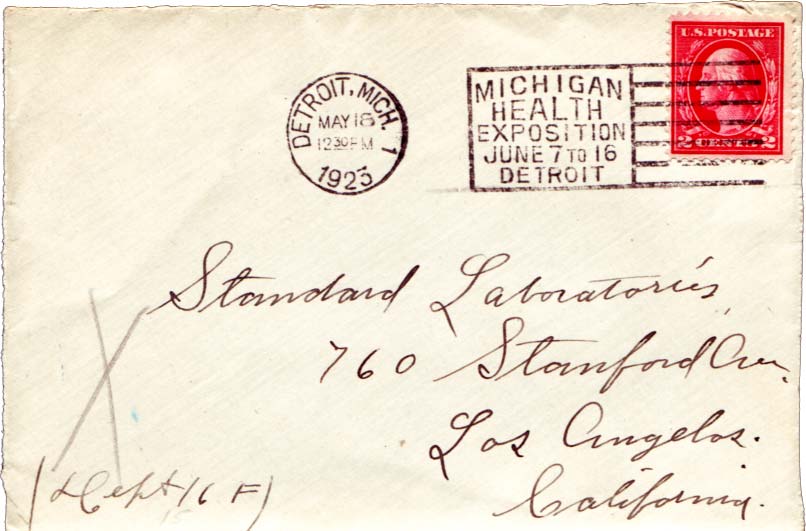 DETROIT, MICH. 1
MAY 18
12 30 PM
1923
MICHIGAN
HEALTH
EXPOSITION
JUNE 7 TO 16
DETROIT
U.S. POSTAGE
2 CENTS 2
Standard Laboratories,
760 Stanford Ave.
Los Angelos.
California.
(Dept 16 F)